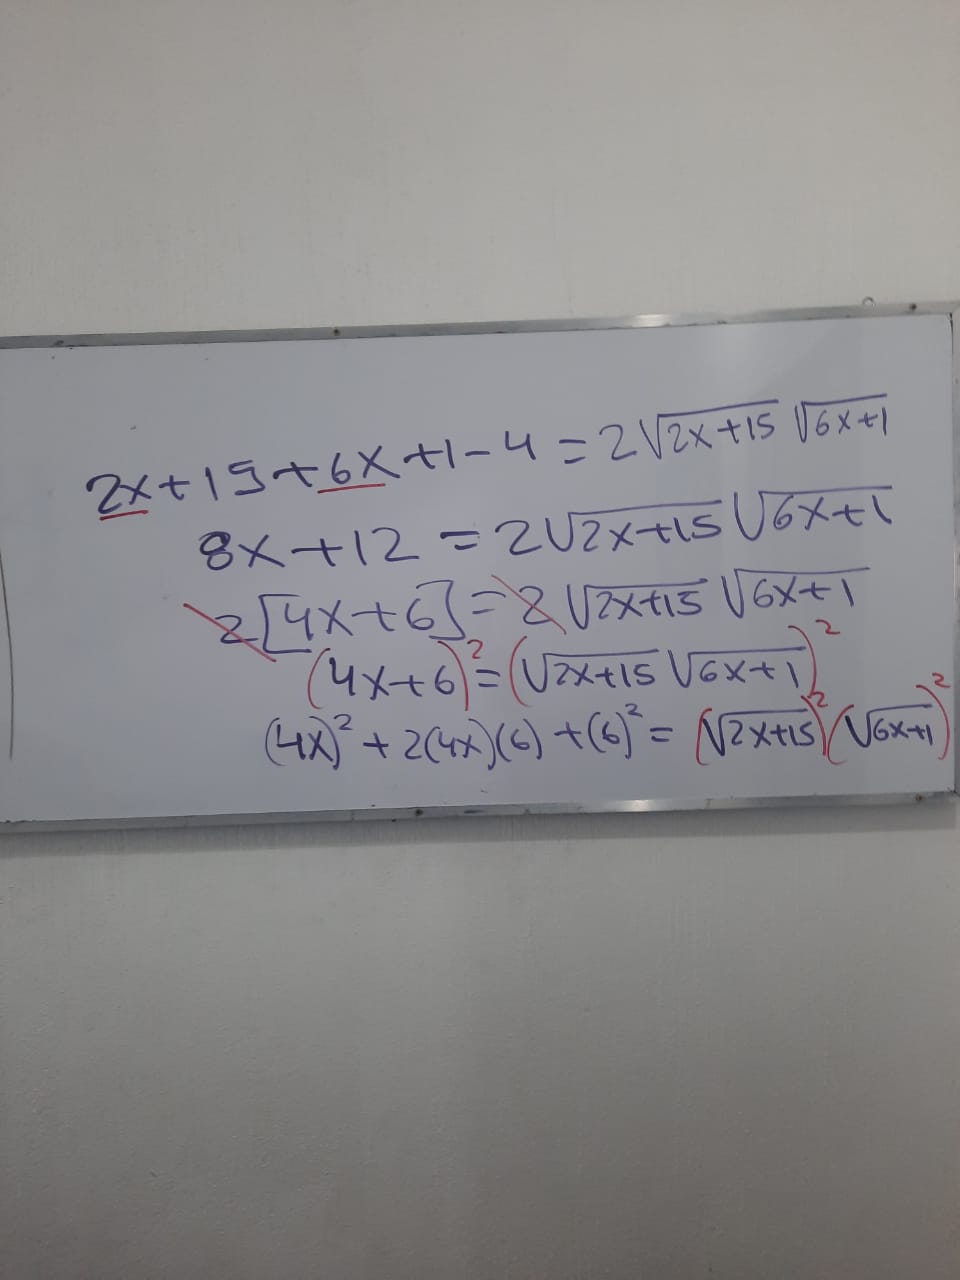 2x+15+6x+1-4=2√2x+15 √6x+1
8x+12=2√2x+15 √6x+1
2[4x+6]=2√2x+15 √6x+1
(4x+6)²=(√2x+15 √6x+1)²
(4x)²+2(4x)(6)+(6)²=(√2x+15)²(√6x+1)²